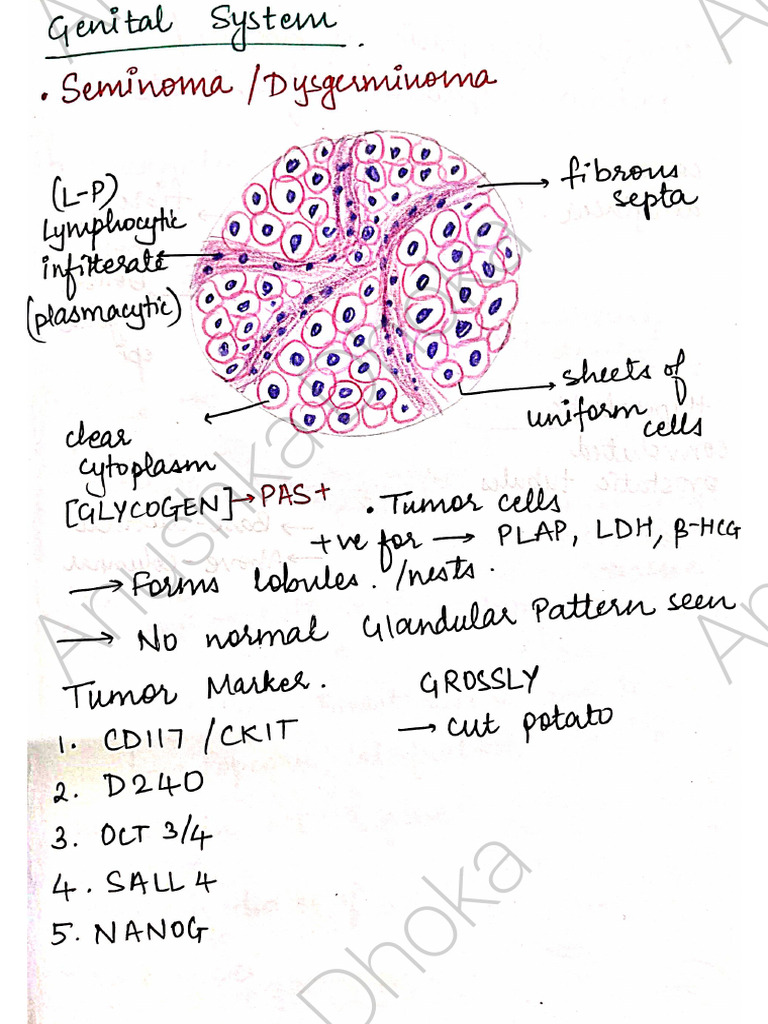 Genital System
. Seminoma / Dysgerminoma
(L-P)
Lymphocytic
infilterate
(plasmacytic)
fibrous
septa
sheets of
uniform cells
clear
cytoplasm
[GLYCOGEN] → PAS+
. Tumor cells
+ve for → PLAP, LDH, β-HCG
→ Forms lobules. /nests.
→ No normal Glandular Pattern seen
Tumor Marker.
1. CD117 / CKIT
2. D240
3. OCT 3/4
4. SALL 4
5. NANOG
GROSSLY
→ cut potato
Anushka Dhoka
Dhoka
An
An